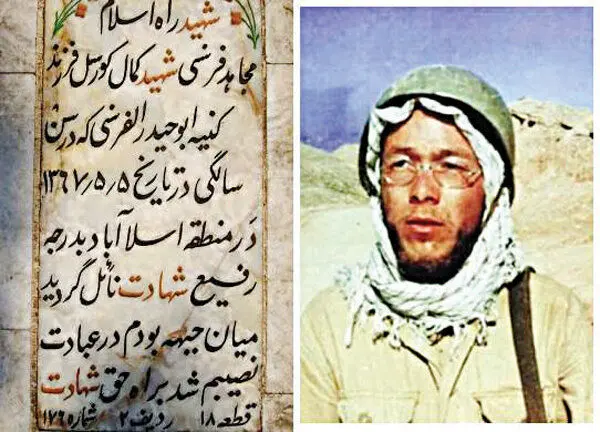 شهید راه اسلام
مجاهد فرنسی شهید کمال کورسل فرزند
کنیه ابوحیدر الفرنسی که در سن
سالگی در تاریخ ۱۳۶۷٫۵٫۵
در منطقه اسلام‌آباد بدرجه
رفیع شهادت نائل گردید
میان جبهه بودم در عبادت
نصیبم شد براه حق شهادت
قطعه ۱۸ ردیف ۲ شماره ۱۷۶